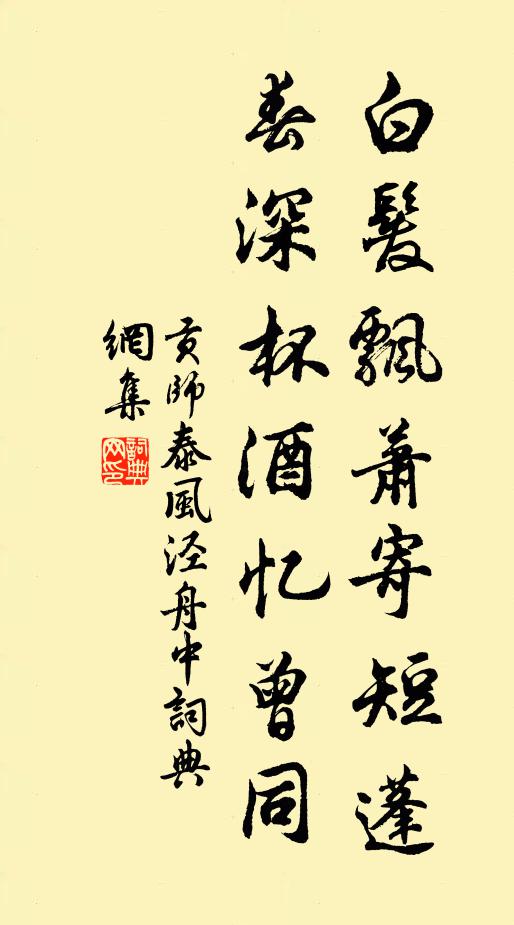 白髮飄蕭寄短蓬
春深杯酒忆曾同
贡師泰風泾舟中詞典
網集
詞典网印